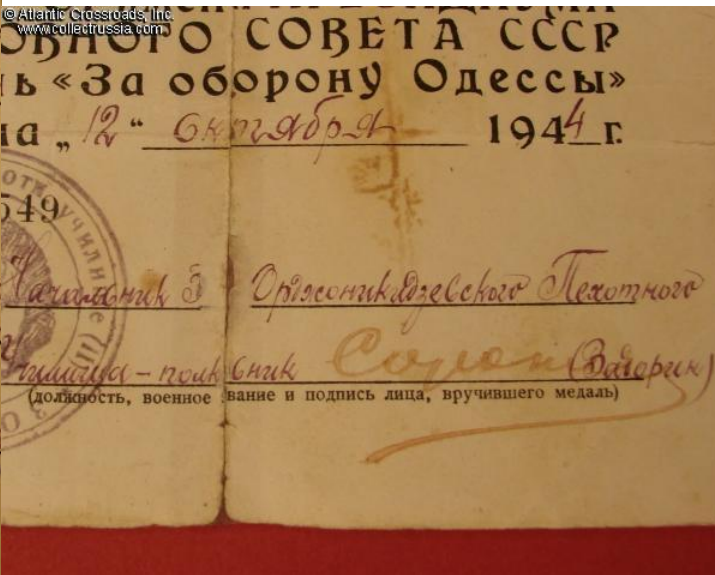 © Atlantic Crossroads, Inc.
www.collectrussia.com
ОВНОГО СОВЕТА СССР
ь «За оборону Одессы»
на „12“ октября 1944 г.
549
Начальник 3 Орджоникидзевского Пехотного
Училища-полковник (Захарин)
(должность, военное звание и подпись лица, вручившего медаль)